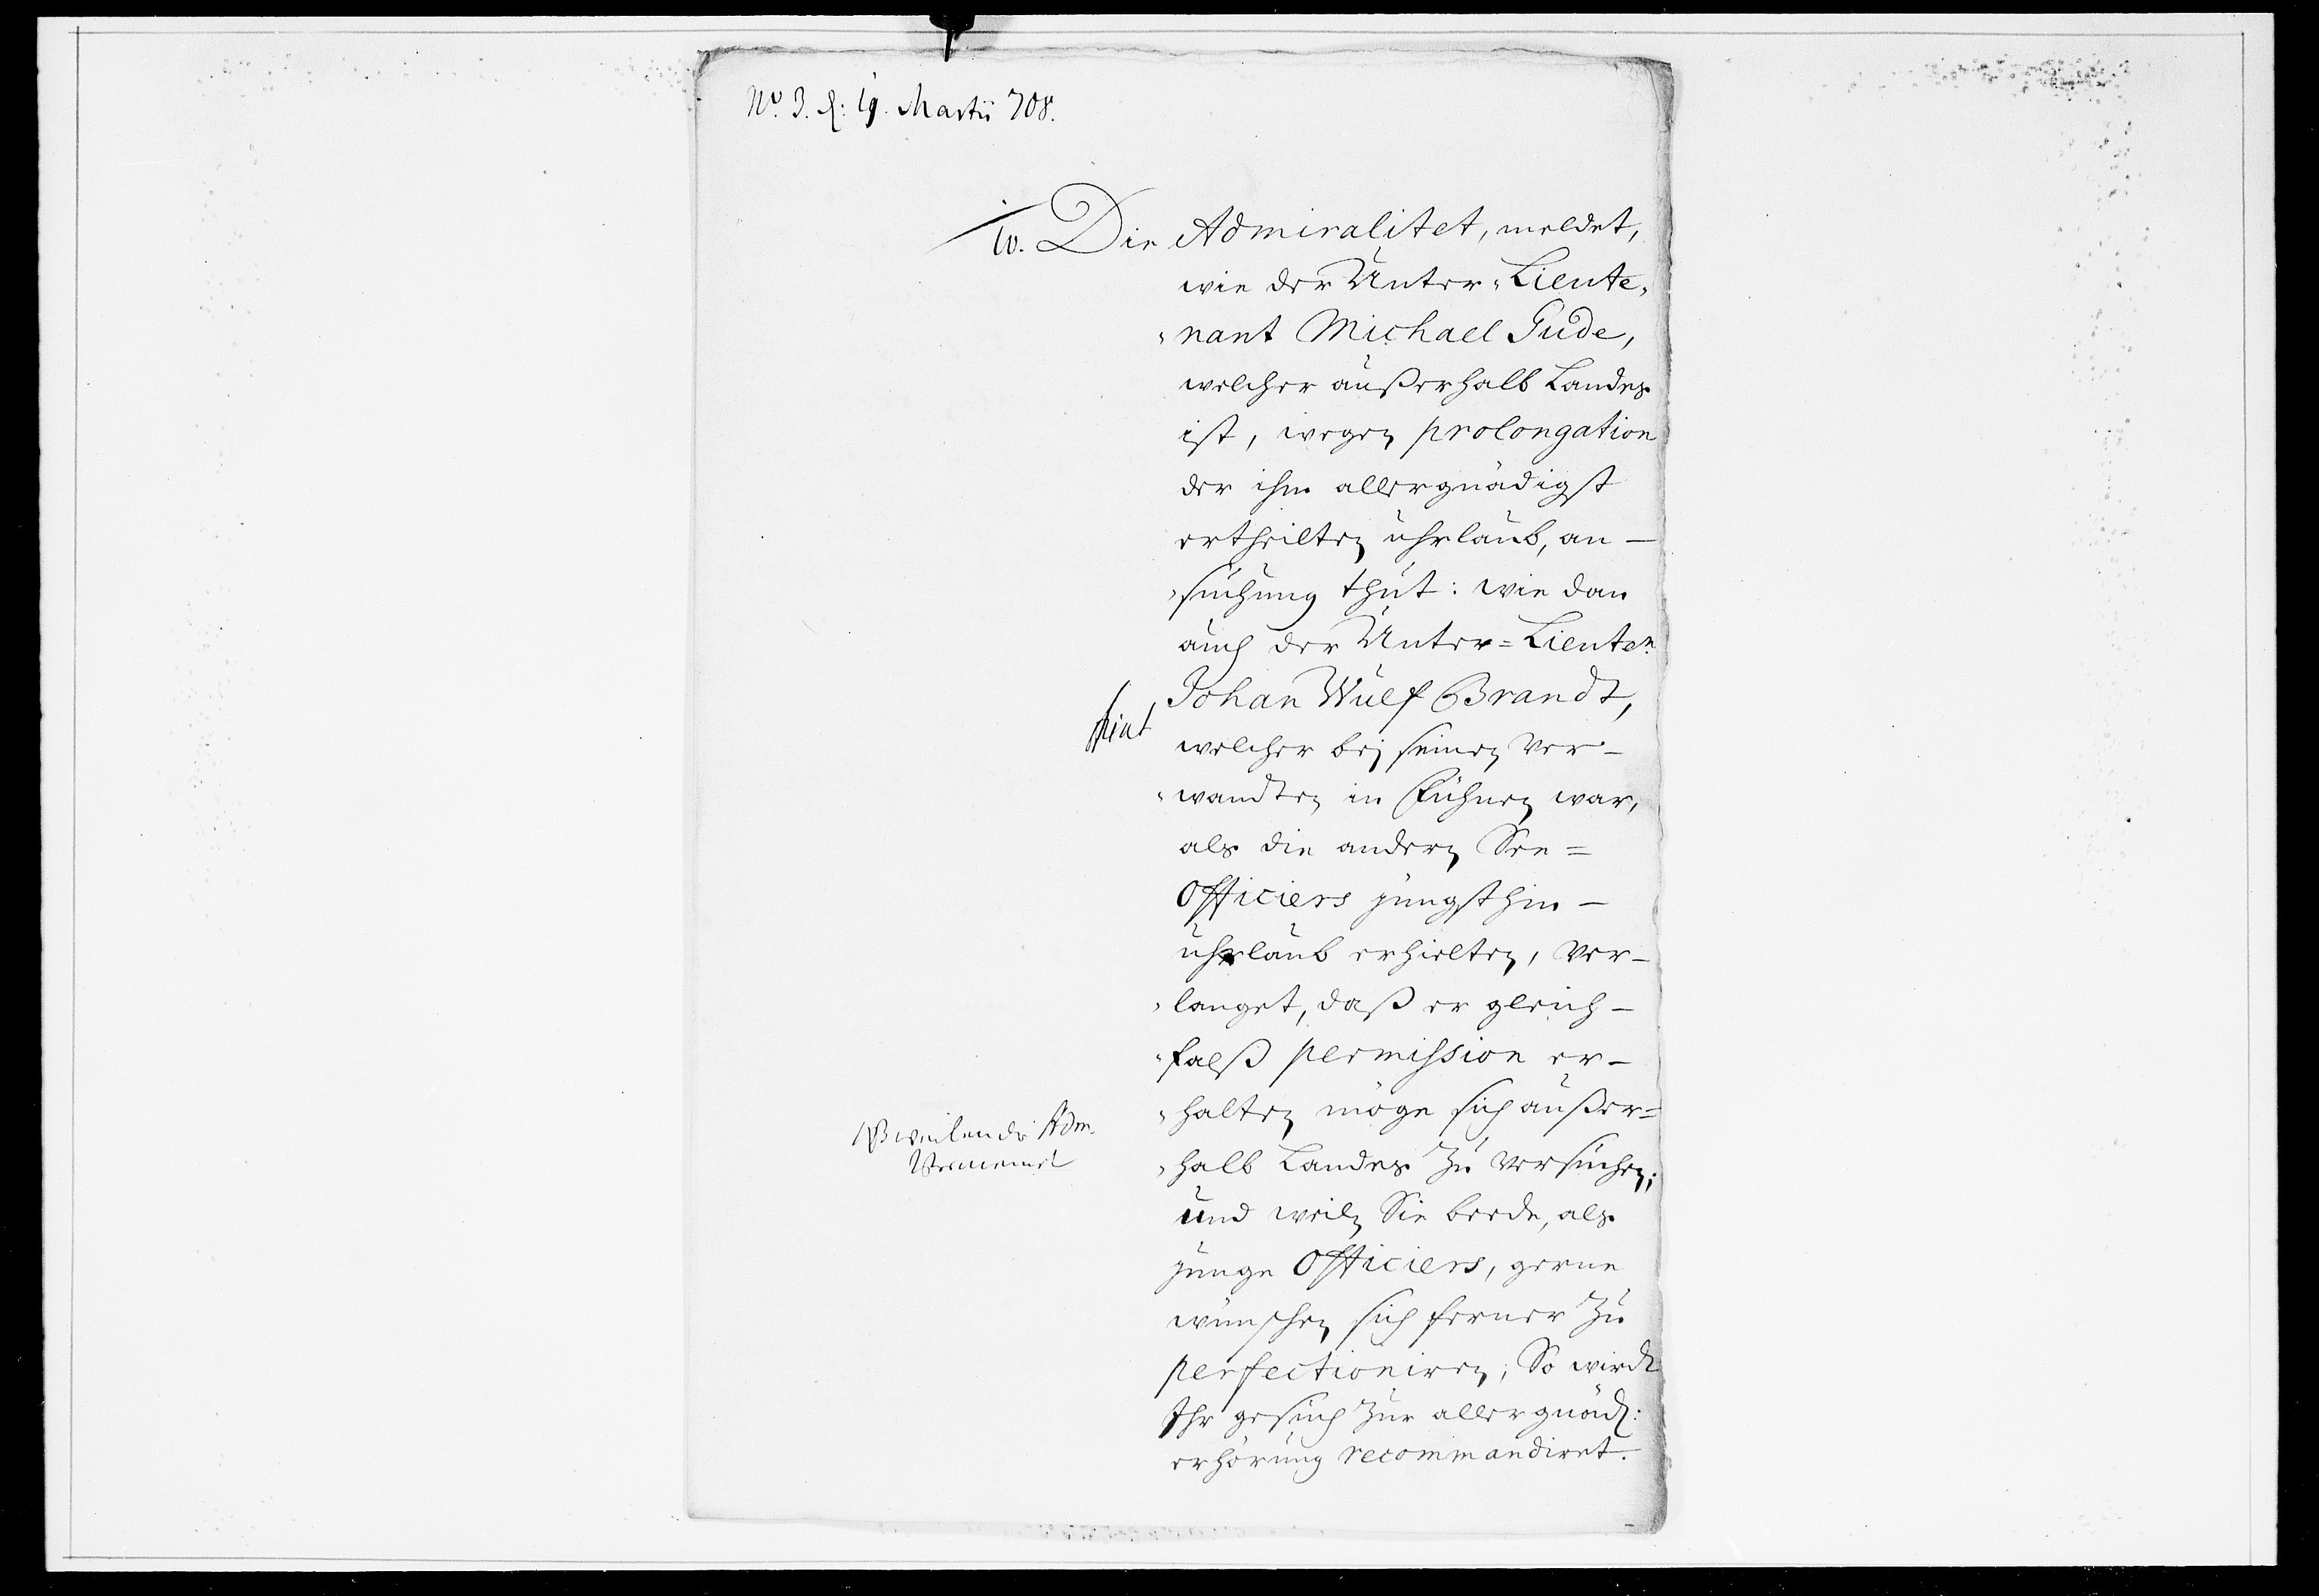 No. 3. d: 19. Martii 708.
10. Die Admiralitet, meldet,
wie der Unter-Lieute-
nant Michael Gude,
welcher außerhalb Landes
ist, wegen prolongation
der ihm allergnädigst
ertheilten uhrlaub, an-
suchung thut: wie dan
auch der Unter-Lieuten:
Johan Wulf Brandt,
fiat
welcher bej seinen ver-
wandten in Fühnen war,
als die andern See=
Officiers jüngsthin
uhrlaub erhielten, ver-
langet, daß er gleich-
falß permission er-
halten möge sich außer=
halb Landes zu versuchen;
weilen die Adm.
und weiln Sie beede, als
junge Officiers, gerne
wünschen sich ferner zu
perfectioniren; So wirdt
Ihr gesuch zur allergnäd:
erhörung recommandiret.